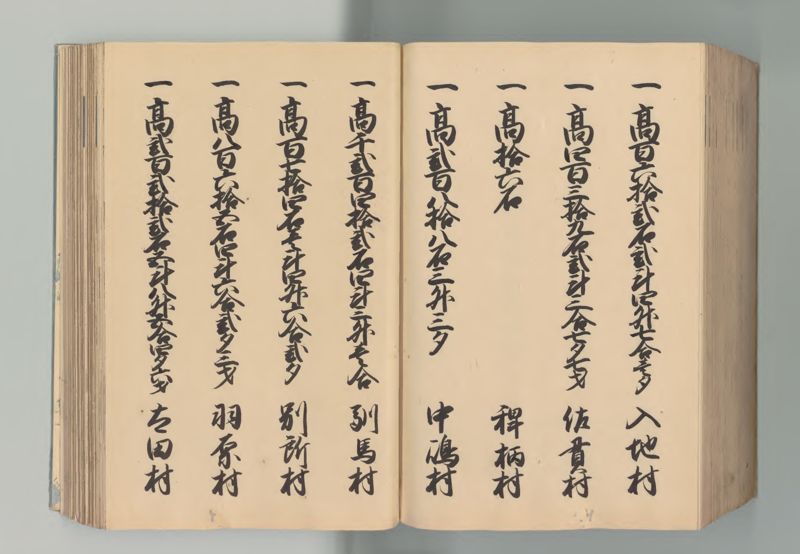 一高百六拾弐石弐斗四升七合壱夕 入地村
一高四百三拾九石弐斗二合七夕七才 佐貫村
一高拾六石 稗柄村
一高弐百八拾八石三升三夕 中嶋村
一高千弐百四拾弐石四斗二升壱合 馴馬村
一高百七拾四石壱斗四升六合弐夕 別所村
一高八百六拾六石四斗六合弐夕三才 羽原村
一高弐百弐拾弐石六斗八升六合四夕六才 太田村